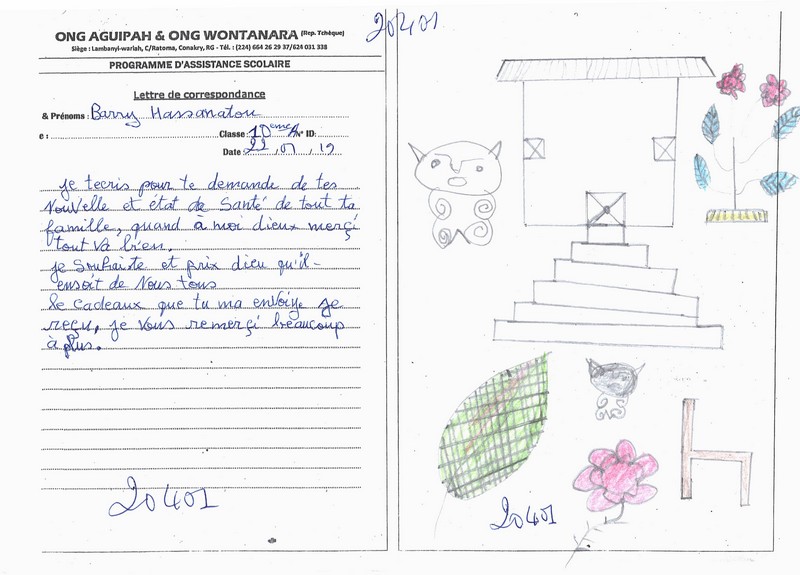 20401
ONG AGUIPAH & ONG WONTANARA (Rep. Tchèque)
Siège : Lambanyi-wariah, C/Ratoma, Conakry, RG - Tél. : (224) 664 26 29 37/624 031 338
PROGRAMME D'ASSISTANCE SCOLAIRE
Lettre de correspondance
& Prénoms : Barry Hassanatou
e : Classe 10ème A N° ID:
Date 22, 01, 19
je tecris pour te demande de tes
Nouvelle et état de Santé de tout ta
famille, quand à moi dieux merçi
tout va bien.
je Souhaite et prix dieu qu'il-
ensoit de Nous tous
le cadeaux que tu ma envoiye je
reçu, je vous remerçi beaucoup
à plus.
20401
20401